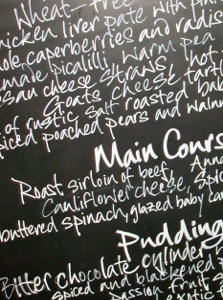 Wheat-free
chicken liver pate with pin
hole caperberries and radis
made picalilli, warm pea
cheese straws hot
Goats cheese tar
of rustic salt roasted bab
spiced poached pears and walnu
Main Cours
Roast sirloin of beef, An
Cauliflower cheese,
buttered spinach, glazed baby car
Pudding
Bitter chocolate cylinder
spiced and blackened
passion fruit